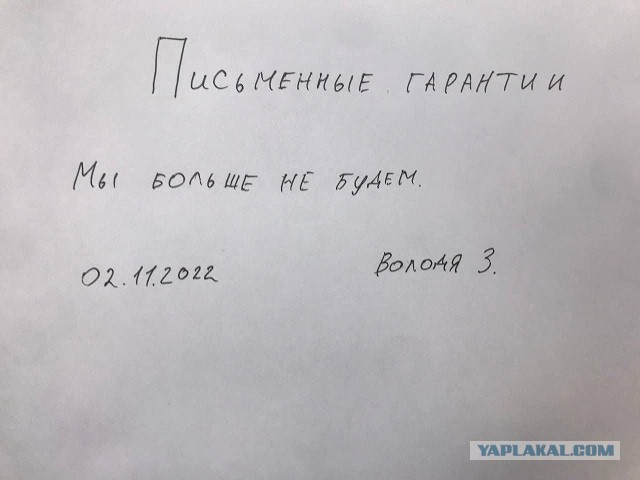 Письменные гарантии
Мы больше не будем.
02.11.2022 Володя З.
YAPLAKAL.COM